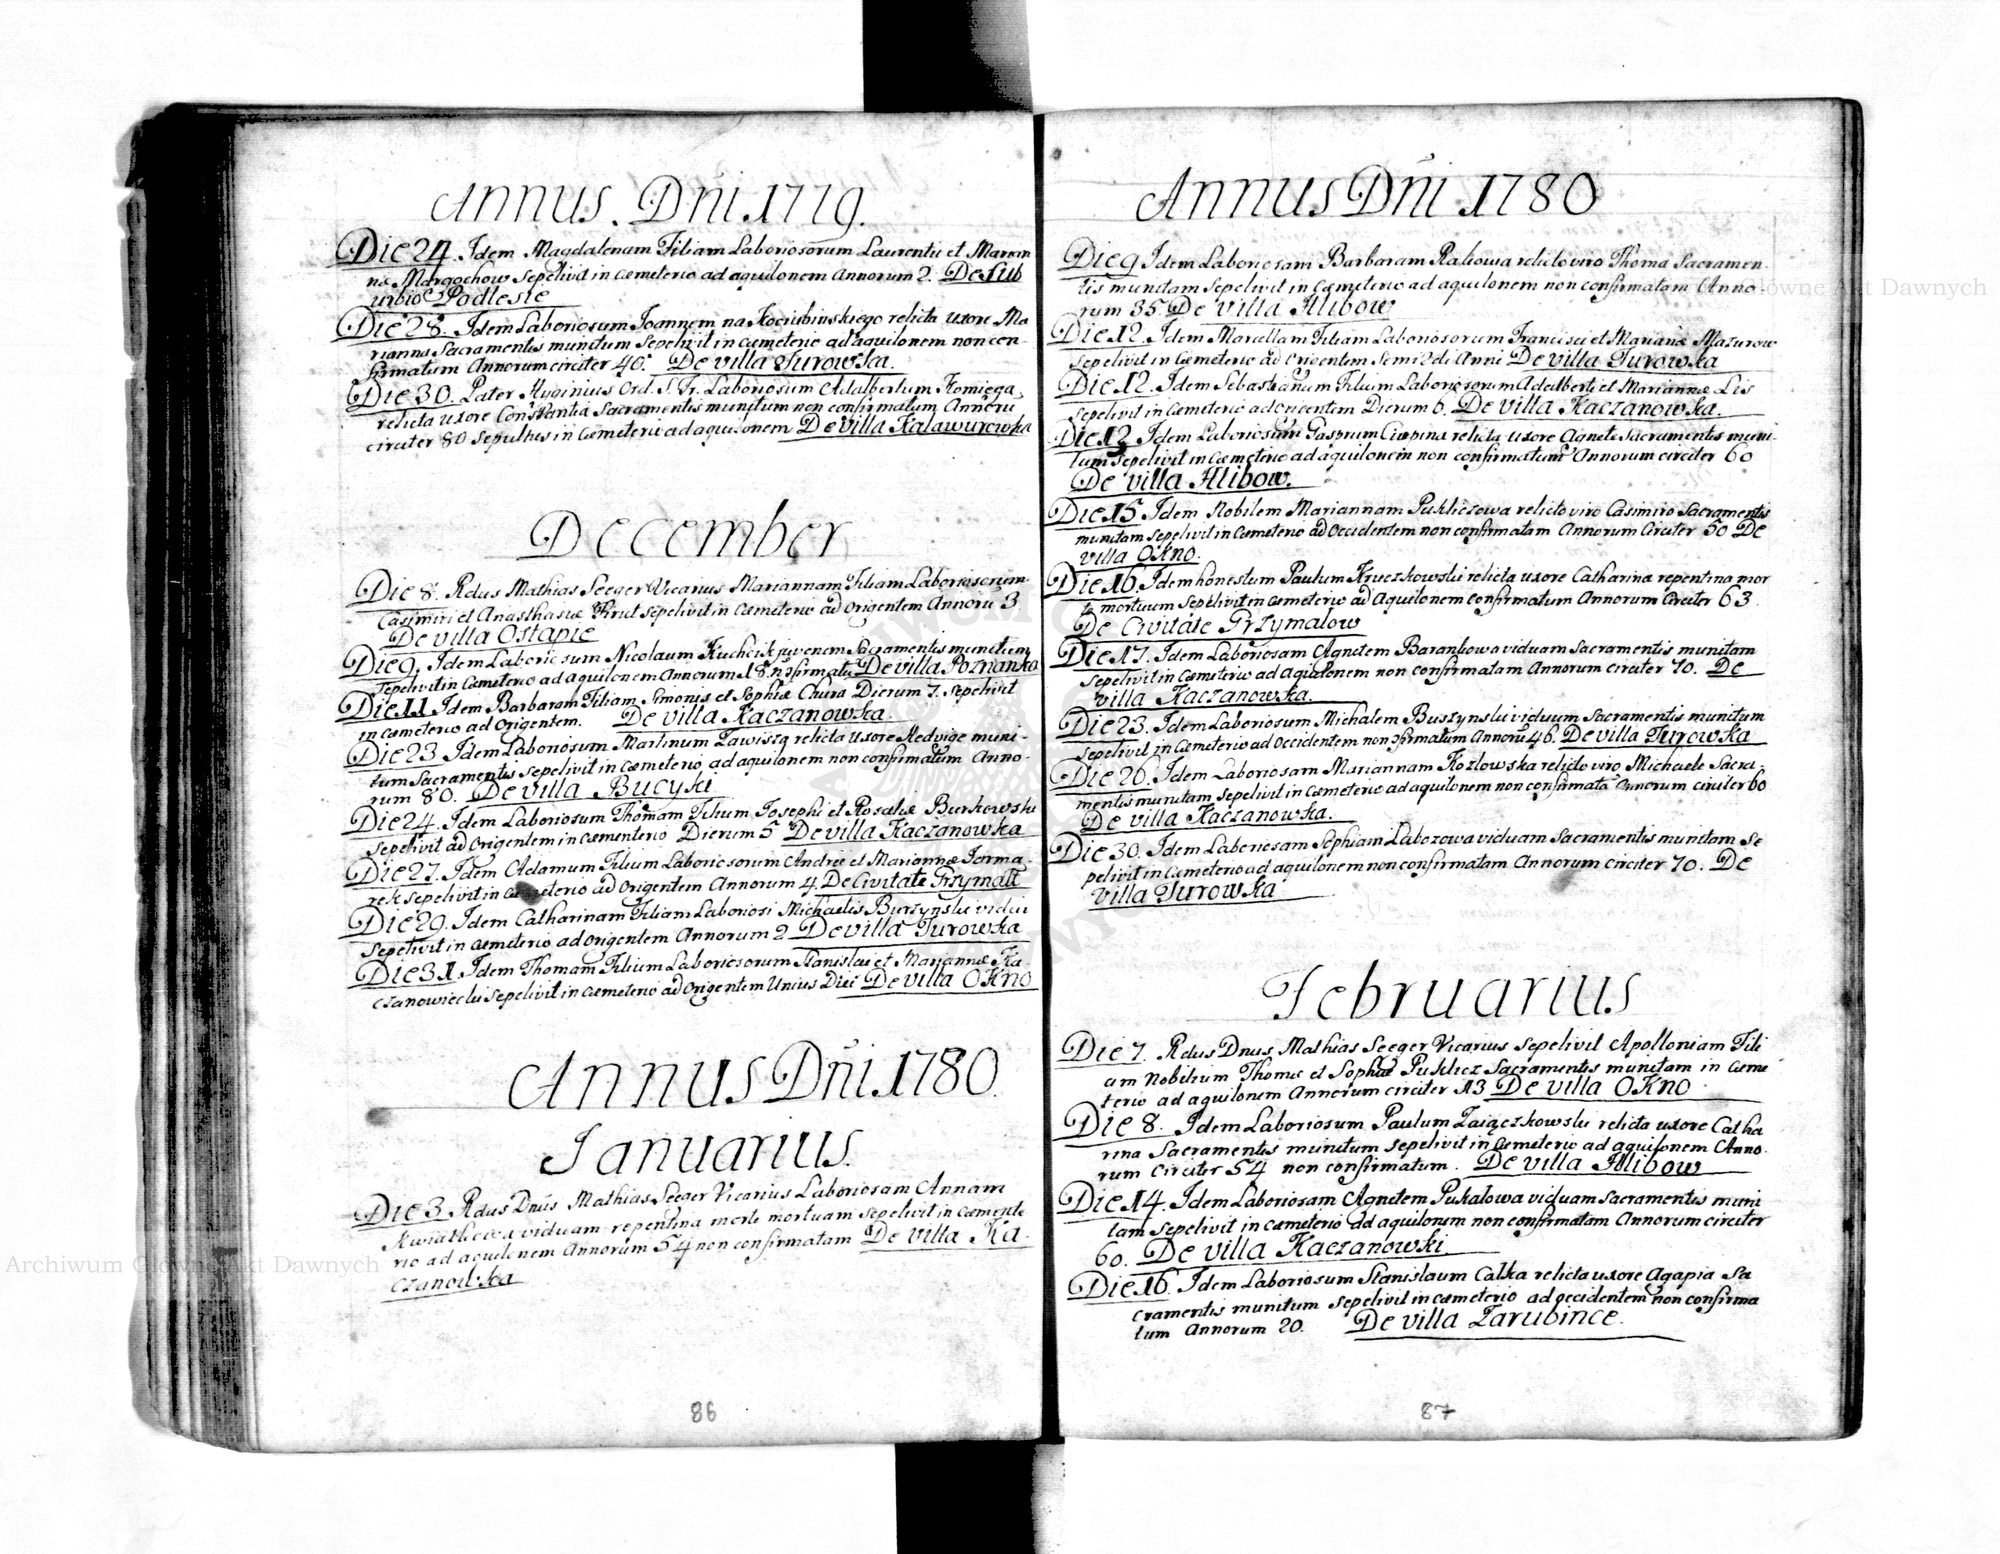 Annus Dñi 1779.
Die 24. Idem Magdalenam Filiam Laboriosorum Laurentii et Marian
næ Margochow Sepelivit in Cæmeterio ad aquilonem Annorum 2. De sub
urbio Podlesie
Die 28. Idem Laboriosum Joannem na Kociubinskiego relicta uxore Ma
rianna Sacramentis munitum sepelivit in cæmeterio ad aquilonem non con-
firmatum Annorum circiter 40. De villa Turowska.
Die 30. Pater Hyginius Ord. S. Fr. Laboriosum Adalbertum Komiega
relicta uxore Constantia Sacramentis munitum non confirmatum Annoru
circiter 80 Sepultus in Cæmeterio ad aquilonem De villa Kalawurowka
December
Die 8. Rdus Mathias Seeger Vicarius Mariannam Filiam Laboriosorum
Casimiri et Anasthasiæ Prut sepelivit in cæmeterio ad Origentem Annoru 3
De villa Ostapie
Die 9. Idem Laboriosum Nicolaum Kucherik juvenem Sacramentis munitum
Sepelivit in Cæmeterio ad aquilonem Annorum 18. De villa Poznanka
Die 11 Idem Barbaram Filiam Simonis et Sophiæ Chura Dierum 7. sepelivit
in cæmeterio ad Origentem. De villa Kaczanowka
Die 23 Idem Laboriosum Martinum Zawiszą relicta uxore Hedvige muni-
tum Sacramentis sepelivit in cæmeterio ad aquilonem non confirmatum Anno-
rum 80. De villa Bucyki
Die 24. Idem Laboriosum Thomam Filium Josephi et Rosaliæ Burkowski
Sepelivit ad Origentem in cæmenterio Dierum 5 De villa Kaczanowka
Die 27. Idem Adamum Filium Laboriosorum Andreæ et Mariannæ Jorma-
rek sepelivit in cæmeterio ad Origentem Annorum 4. De Civitate Grzymałł
Die 29. Idem Catharinam Filiam Laboriosi Michaelis Burzynski vidui
Sepelivit in cæmeterio ad Origentem Annorum 2 De villa Turowka
Die 31. Idem Thomam Filium Laboriosorum Stanislai et Mariannæ Ka-
czanowiecki Sepelivit in cæmeterio ad Origentem Unius Diei De villa Okno
Annus Dñi 1780.
Januarius.
Die 3 Rdus Dnús Mathias Seeger Vicarius Laboriosam Annam
Kwiatkowa viduam repentina morte mortuam sepelivit in cæmete
rio ad aquilonem Annorum 54 non confirmatam De villa Ka-
czanowka
86
Annus Dñi 1780
Die 9 Idem Laboriosam Barbaram Rakowa relicto viro Thoma Sacramen-
tis munitam sepelivit in Cæmeterio ad aquilonem non confirmatam Anno-
rum 35 De villa Hlibow
Die 12. Idem Marcellam Filiam Laboriosorum Francisci et Marianæ Mazurow
Sepelivit in Cæmeterio ad Origentem Semi 2di Anni De villa Turowka
Die 12. Idem Sebastianum Filium Laboriosorum Adalberti et Mariannæ Lis
sepelivit in Cæmeterio ad oricentem Dierum 6. De villa Kaczanowka.
Die 13 Idem Laboriosum Gasprum Ciupina relicta uxore Agnete Sacramentis muni-
tum sepelivit in Cæmeterio ad aquilonem non confirmatum Annorum circiter 60
De villa Hlibow.
Die 15 Idem Nobilem Mariannam Pukliczowa relicto viro Casimiro Sacramentis
munitam sepelivit in Cæmeterio ad Occidentem non confirmatam Annorum Circiter 50 De
villa Okno.
Die 16. Idem honestum Paulum Kruczkowski relicta uxore Catharina repentina mor
te mortuum sepelivit in cæmeterio ad Aquilonem confirmatum Annorum Circiter 63.
De Civitate Grzymalow
Die 17. Idem Laboriosam Agnetem Barankowa viduam Sacramentis munitam
Sepelivit in Cæmeterio ad Aquilonem non confirmatam Annorum circiter 70. De
villa Kaczanowka.
Die 23. Idem Laboriosum Michalem Buszynski viduum Sacramentis munitum
Sepelivit in Cæmeterio ad Occidentem non Annoru 46. De villa Turowka
Die 26. Idem Laboriosam Mariannam Kozlowska relicto viro Michaele Sacra-
mentis munitam sepelivit in Cæmeterio ad aquilonem non confirmata Annorum circiter 60
De villa Kaczanowka.
Die 30. Idem Laboriosam Sophiam Labozowa viduam Sacramentis munitam Se
pelivit in Cæmeterio ad aquilonem non confirmatam Annorum circiter 70. De
villa Turowka
Februarius
Die 7. Rdus Dnus Mathias Seeger Vicarius sepelivit Apolloniam Fili
am Nobilium Thomæ et Sophiæ Puklicz Sacramentis munitam in Cæme
terio ad aquilonem Annorum circiter 13 De villa Okno
Die 8. Idem Laboriosum Paulum Zaiączkowski relicta uxore Catha
rina Sacramentis munitum sepelivit in Cæmeterio ad aquilonem Anno-
rum Circiter 54 non confirmatum. De villa Hlibow
Die 14. Idem Laboriosam Agnetem Pukalowa viduam Sacramentis muni
tam sepelivit in cæmeterio ad aquilonem non confirmatam Annorum circiter
60. De villa Kaczanowki
Die 16. Idem Laboriosum Stanislaum Calka relicta uxore Agapia Sa
cramentis munitum sepelivit in cæmeterio ad occidentem non confirma
tum Annorum 20. De villa Zarubince.
87
Archiwum Główne Akt Dawnych